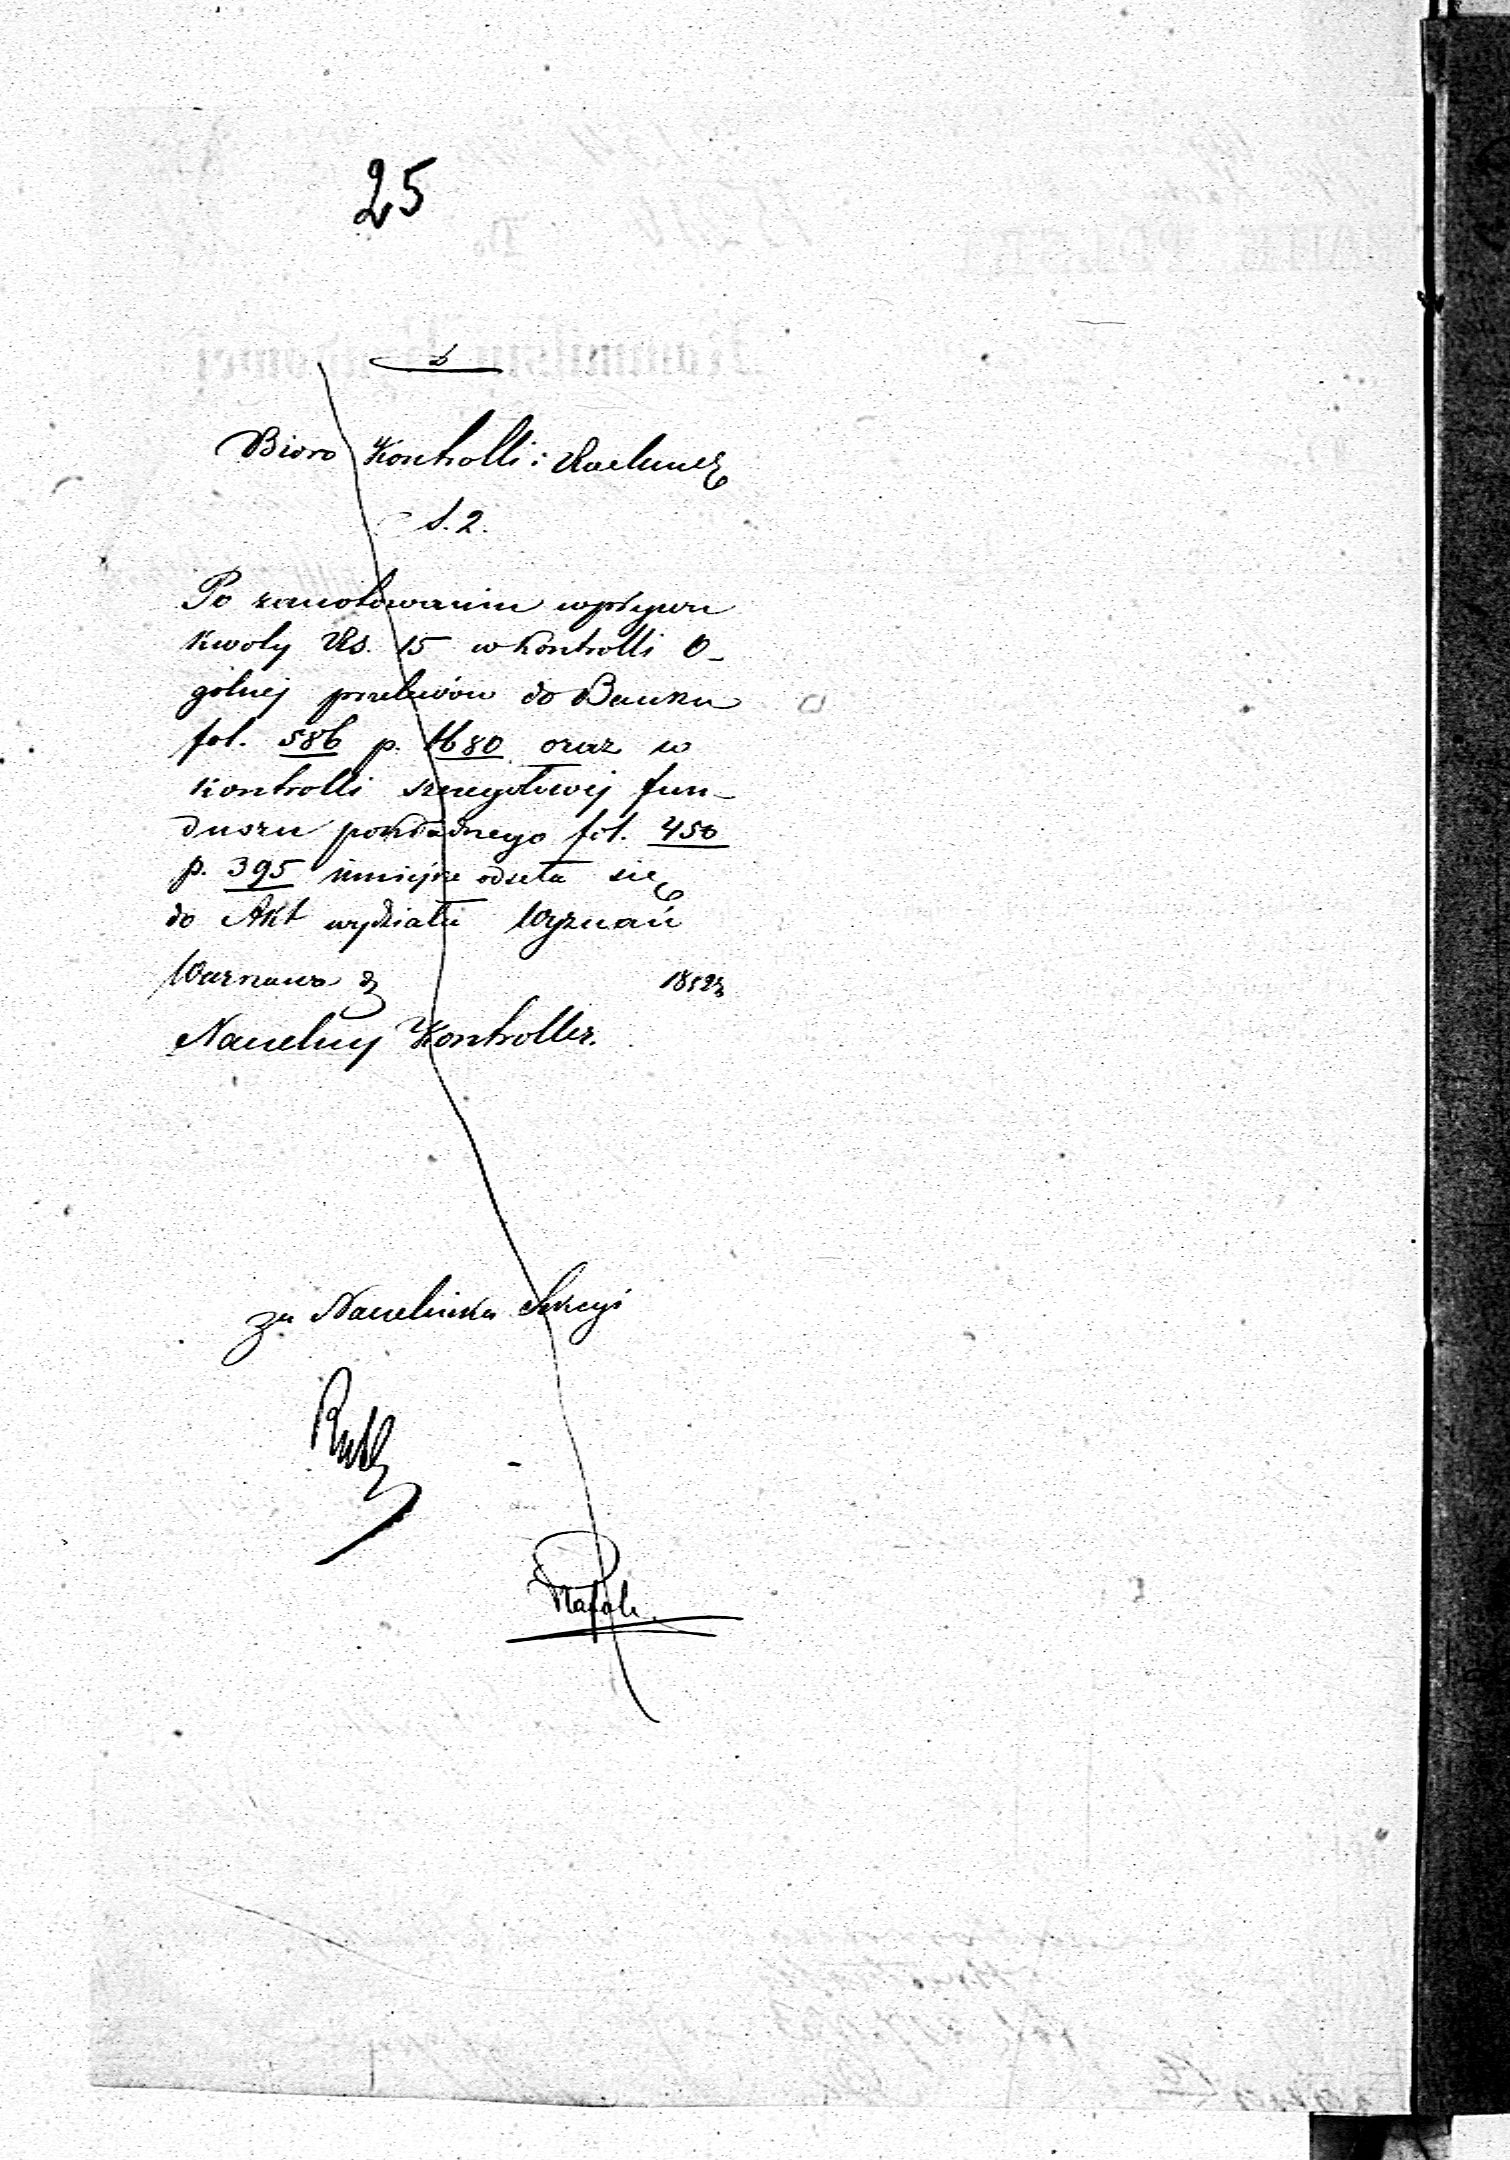 25
Bioro Kontrolli i Rachun
S. 2.
Po zanotowaniu wpływu
kwoty Rs. 15 w Kontrolli O-
gólnej przelewów do Banku
fol. 586 p. 1680 oraz w
Kontrolli szczegółowej fun-
duszu pokładnego fol. 450
p. 395 niniejsze odseła się
do Akt wydziału Wyznań
Warszawa d 1852
Naczelny Kontroller.
za Naczelnika Sekcyi